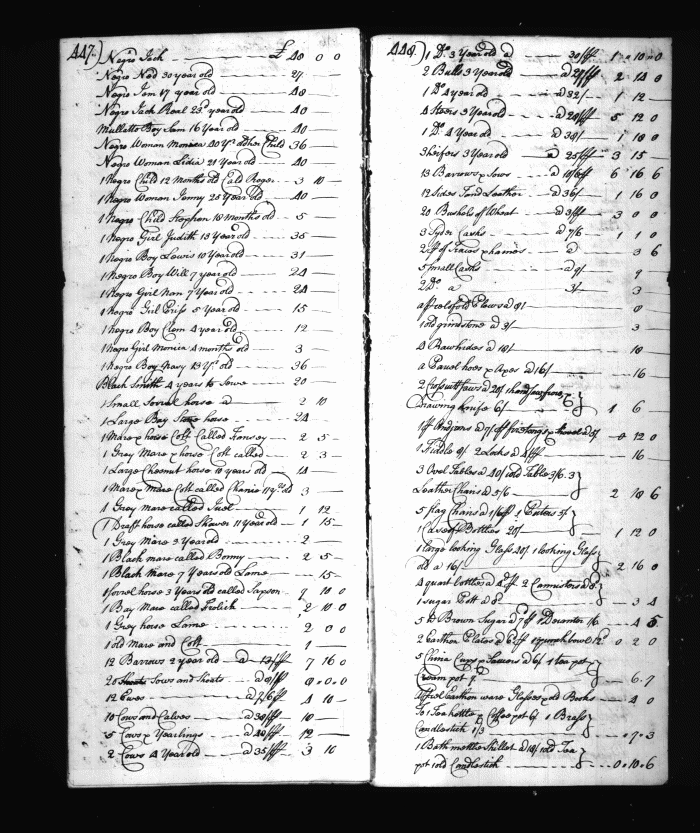 447.) Negro Jack £ 40 0 0
Negro Ned 30 year old 27
Negro Jem 17 year old 40
Negro Jack Real 23 year old 40
Mullatto Boy Sam 16 Year old 40
Negro Woman Monica 20 Yrs old & her Child 36
Negro Woman Lidia 21 Year old 40
1 Negro Child 12 Months old Cald Roger 3 10
1 Negro Woman Jenny 25 Year old 40
1 Negro Child Stephen 18 months old 5
1 Negro Girl Judith 13 Year old 35
1 Negro Boy Lewis 10 Year old 31
1 Negro Boy Will 7 year old 24
1 Negro Girl Nan 7 Year old 24
1 Negro Girl 5 Year old 15
1 Negro Boy Clem 4 year old 12
1 Negro Girl Monica 4 months old 3
1 Negro Boy Navy 13 Yr old 36
Black Smith 4 years to Serve 20
1 Small Sorrel horse a 2 10
1 Large Bay horse 24
1 Mare & horse Colt Called 2 5
1 Grey Mare & horse Colt called 2 3
1 Large Chesnut horse 10 years old 14
1 Mare & mare Colt called 11 yrs old 3
1 Grey Mare called Juel 1 12
1 Draft horse called Shaver 11 Year old 1 15
1 Grey Mare 3 Year old 2
1 Black mare called Bonny 2 5
1 Black Mare 7 Years old Lame 15
1 Sorrel horse 3 Years old called Sapson 9 10 0
1 Bay Mare called Frolick 2 10 0
1 Grey horse Lame 2 0 0
1 old Mare and Colt 1
12 Barrows 2 year old a 13/ 7 16 0
20 Sows and Shoats a 8/ 8 0 0
12 Ewes a 7/6 4 10
10 Cows and Calves a 30/ 10
5 Cows & Yearlings a 48/ 12
2 Cows 4 Year old a 35/ 3 10
448) 1 Do 3 Year old a 30/ 1 10 0
2 Bulls 3 Year old a 27/ 2 14 0
1 Do 4 year old a 32/ 1 12
4 Steers 3 Year old a 28/ 5 12 0
1 Do 4 Year old a 38/ 1 18 0
3 heifers 3 Year old a 25/ 3 15
13 Barrows & Sows a 10/6 6 16 6
12 Sides Tand Leather a 36/ 1 16 0
20 Bushels of Wheat a 3/ 3 0 0
3 Syder Casks a 7/6 1 1 0
2 pr of Traces & hames a 3 6
5 small Casks a 9/ 9
2 Do a 3/ 3
a Plows a 8/ 8
1 old grindstone a 3/ 3
4 Rawhides a 18/ 18
a Parcel hoes & Axes a 16/ 16
2 Crosscutt saws a 20/ 1 handsaw }
Drawing knife 6/ } 1 6
1 pr Andjrons a 7/ 0 12 0
1 Fiddle 8/ 2 Locks a 4 16
3 Ovel Tables a 40/ 1 old Table 3/6. 3 }
Leather Chairs a 5/6 } 2 10 6
5 flag Chairs a 1/6 3/ }
1 Case of Bottles 20/ } 1 12 0
1 large looking Glass 40/ 1 looking Glass }
old a 16/ } 2 16 0
4 quart bottles a 4 2 Cannisters a 8 }
1 Sugar Pott a 8 } 3 4
5 lb Brown Sugar a 7 1 Decanter 16 4 5
2 Earthen Plates a 6 1 punch bowl 12d 0 2 0
5 China Cups & Sausers a 6/ 1 tea pot }
Cream pot 7d } 6.7
A Parcel Earthen ware Glasses & old Books 4 0
To 1 Tea kettle & Coffee pot 6/ 1 Brass }
Candlestick 1/3 } 7 3
1 Bath mettle Skillet a 10/ 1 old Tea }
pot 1 old Candlestick } 0 10 6